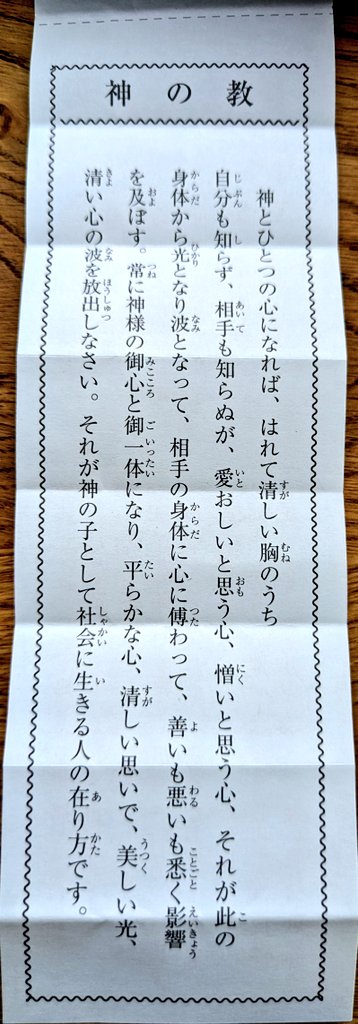 神の教
神とひとつの心になれば、はれて清しい胸のうち
自分も知らず、相手も知らぬが、愛おしいと思う心、憎いと思う心、それが此の
身体から光となり波となって、相手の身体に心に傅わって、善いも悪いも悉く影響
を及ぼす。常に神様の御心と御一体になり、平らかな心、清しい思いで、美しい光、
清い心の波を放出しなさい。それが神の子として社会に生きる人の在り方です。